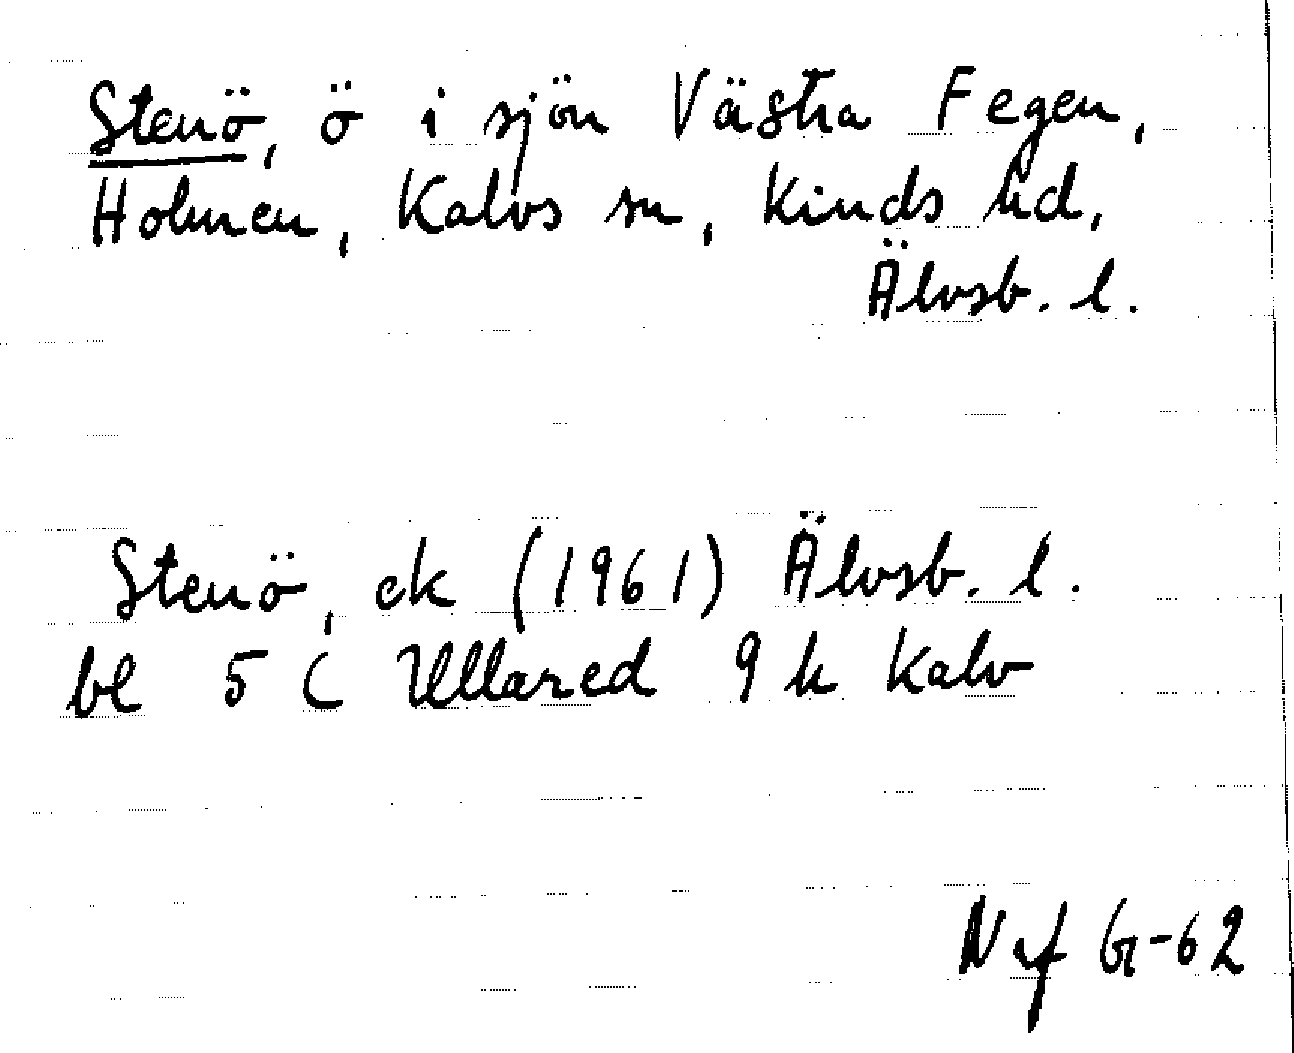 Stenö, ö i sjön Västra Fegen,
Holmen, Kalvs sn, Kinds hd,
Älvsb. l.
Stenö, ek (1961) Älvsb. l.
bl 5 C Ullared 9 h Kalv
Naf G-62